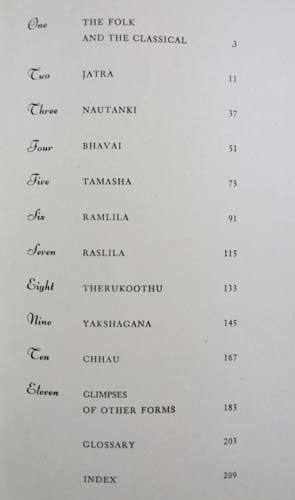 One THE FOLK
AND THE CLASSICAL 3
Two JATRA 11
Three NAUTANKI 37
Four BHAVAI 51
Five TAMASHA 73
Six RAMLILA 91
Seven RASLILA 115
Eight THERUKOOTHU 133
Nine YAKSHAGANA 145
Ten CHHAU 167
Eleven GLIMPSES
OF OTHER FORMS 183
GLOSSARY 203
INDEX 209